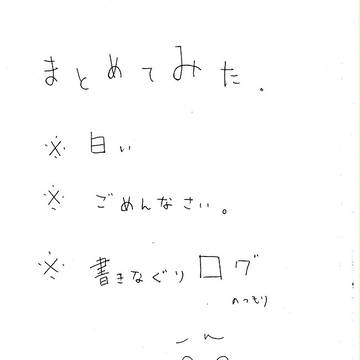 まとめてみた.
※ 白い
※ ごめんなさい。
※ 書きなぐりログ
のつもり